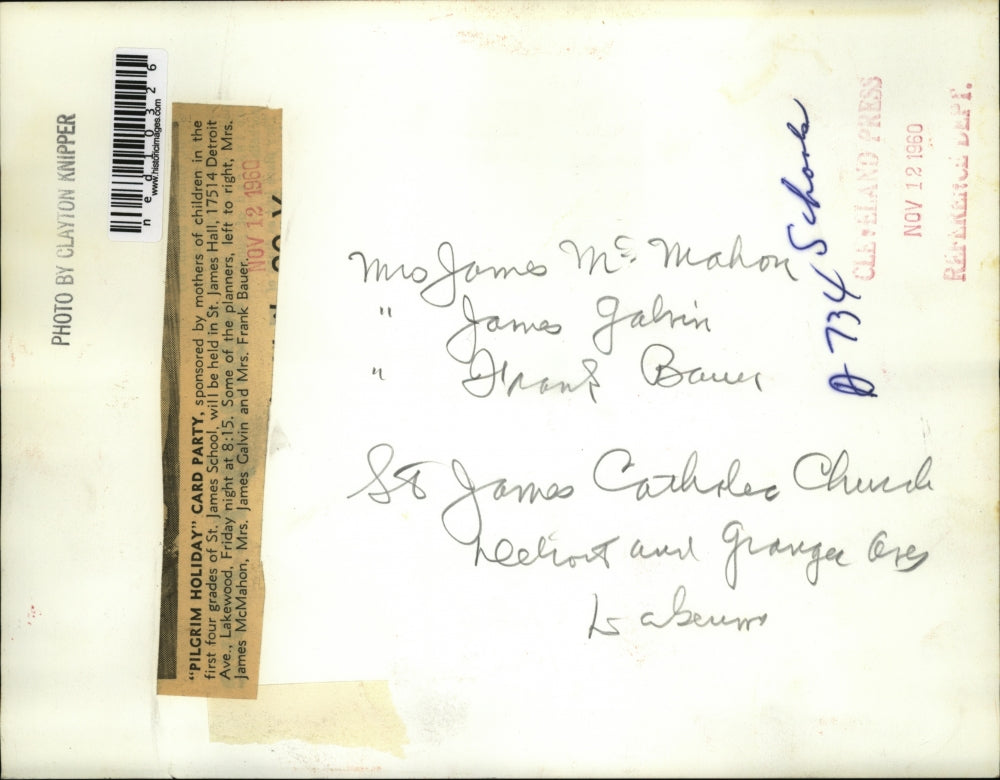 PHOTO BY CLAYTON KNIPPER
ned10326
www.historicimages.com
"PILGRIM HOLIDAY" CARD PARTY, sponsored by mothers of children in the
first four grades of St. James School, will be held in St. James Hall, 17514 Detroit
Ave., Lakewood, Friday night at 8:15. Some of the planners, left to right, Mrs.
James McMahon, Mrs. James Galvin and Mrs. Frank Bauer.
NOV 12 1960
Mrs James McMahon
" James Galvin
" Frank Bauer
St James Catholic Church
Detroit and Granger Aves
Lakewood
734 Schools
CLEVELAND PRESS
NOV 12 1960
REFERENCE DEPT.